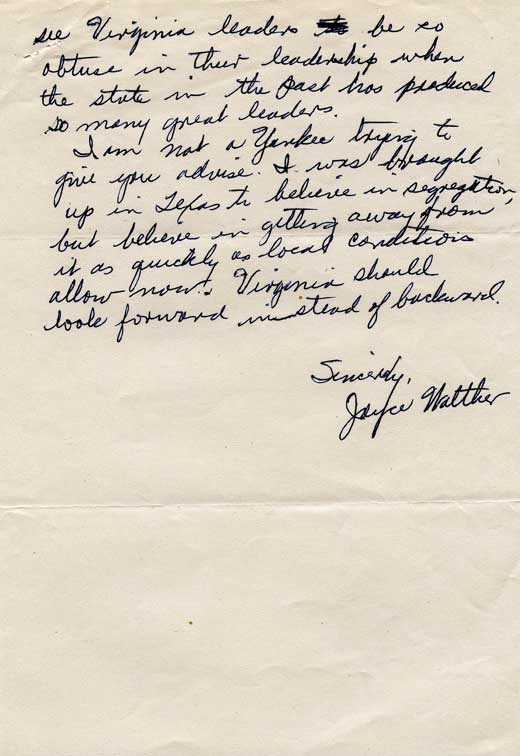 see Virginia leaders to be so
obtuse in their leadership when
the state in the past has produced
so many great leaders.
I am not a Yankee trying to
give you advise. I was brought
up in Texas to believe in segregation,
but believe in getting away from
it as quickly as local conditions
allow now. Virginia should
look forward instead of backward.
Sincerely,
Joyce Walther